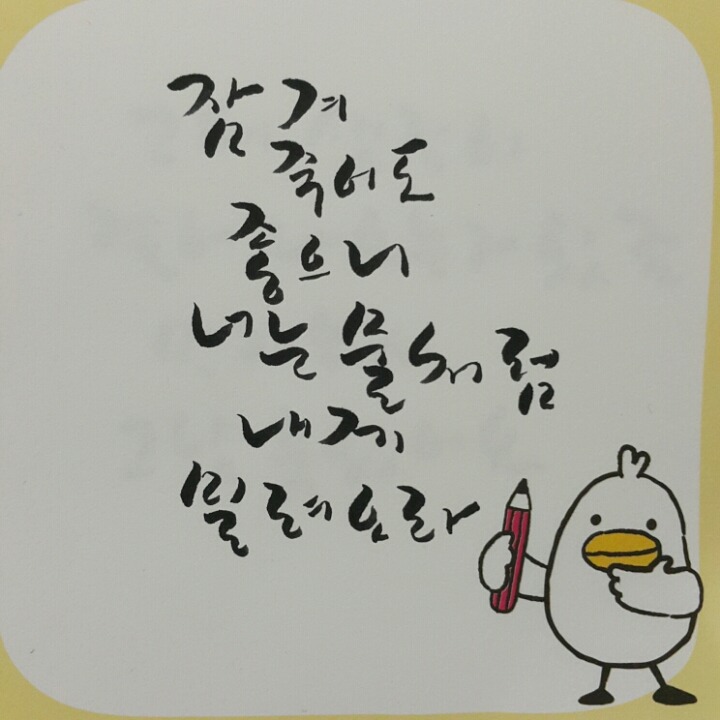 잠겨
죽어도
좋으니
너는 물처럼
내게
밀려오라